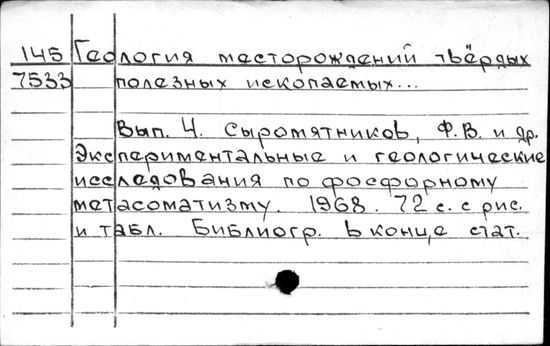 145 Геология месторождений твёрдых
7533 полезных ископаемых...
Вып. 4. Сыромятников, Ф.В. и др.
Экспериментальные и геологические
исследования по фосфорному
метасоматизму. 1968. 72 с. с рис.
и табл. Библиогр. в конце стат.